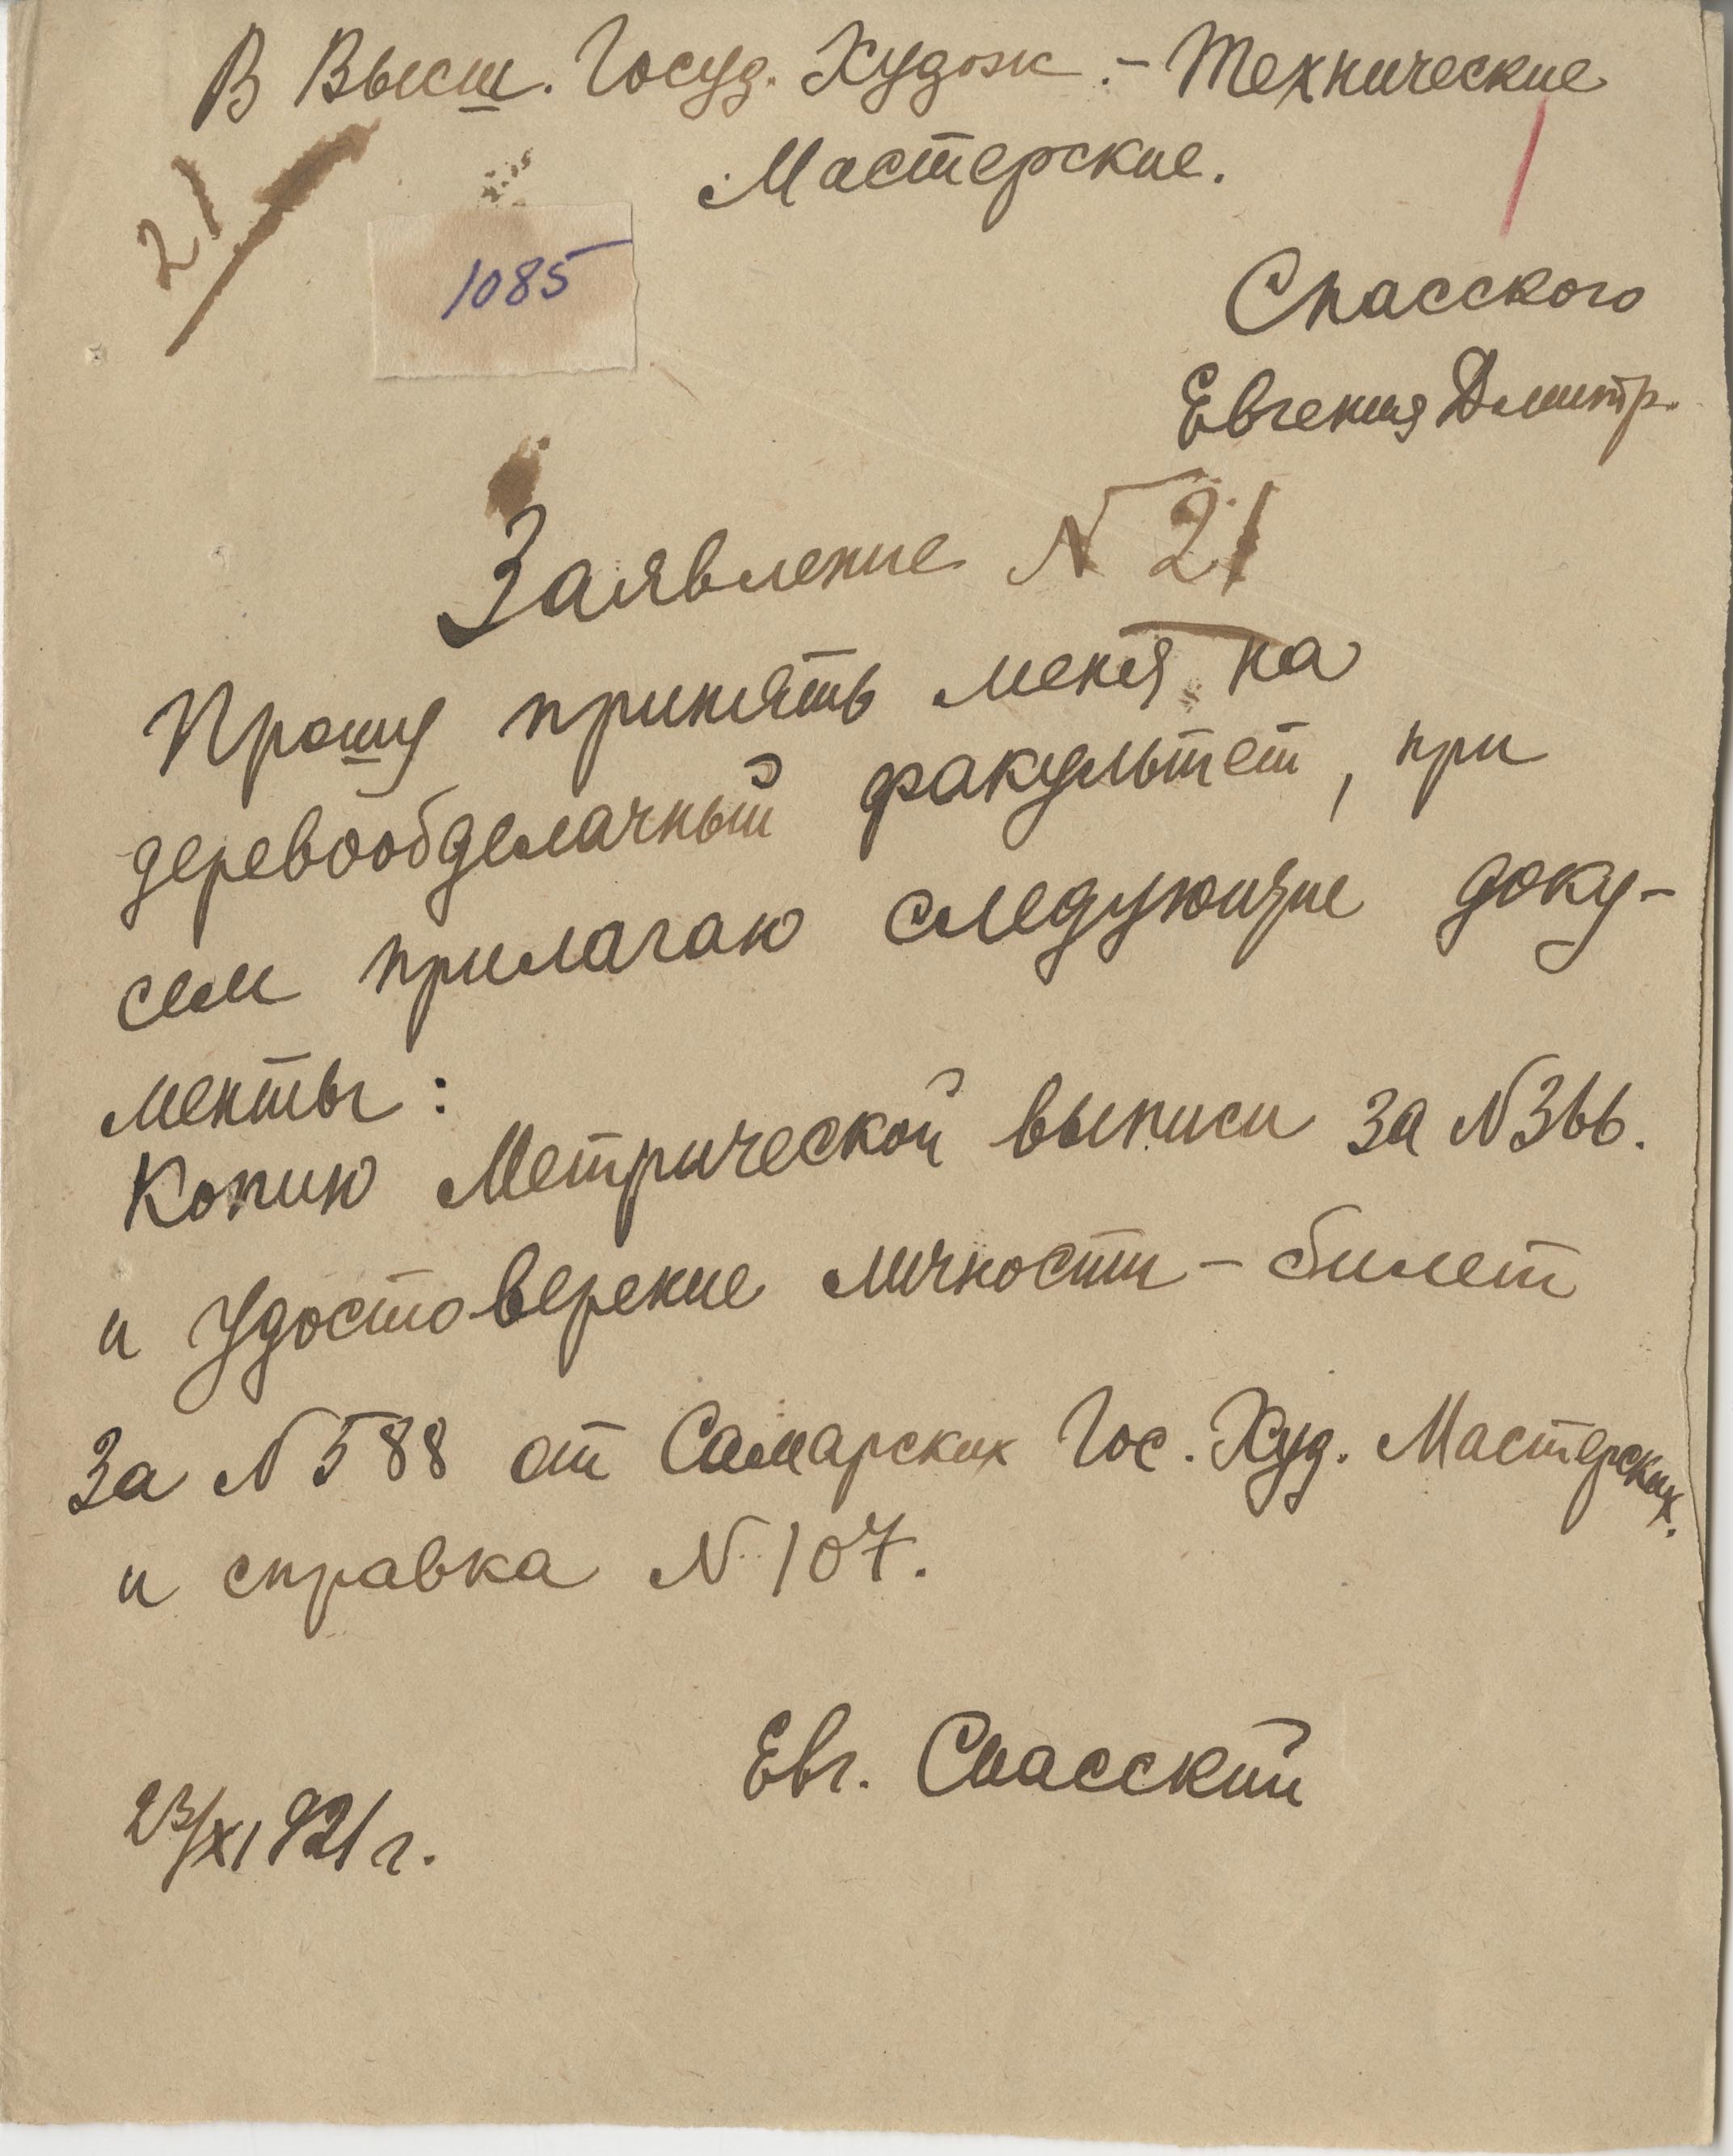 В Высш. Госуд. Худож.-Технические
Мастерские.
21
1085
Спасского
Евгения Дмитр.
Заявление N 21
Прошу принять меня на
деревообделачный факультет, при
сем прилагаю следующие доку-
менты:
Копию Метрической выписи за N 366.
и Удостоверение личности - билет
За N 588 от Самарских Гос. Худ. Мастерских.
и справка N 107.
Евг. Спасский
23/XI 921 г.